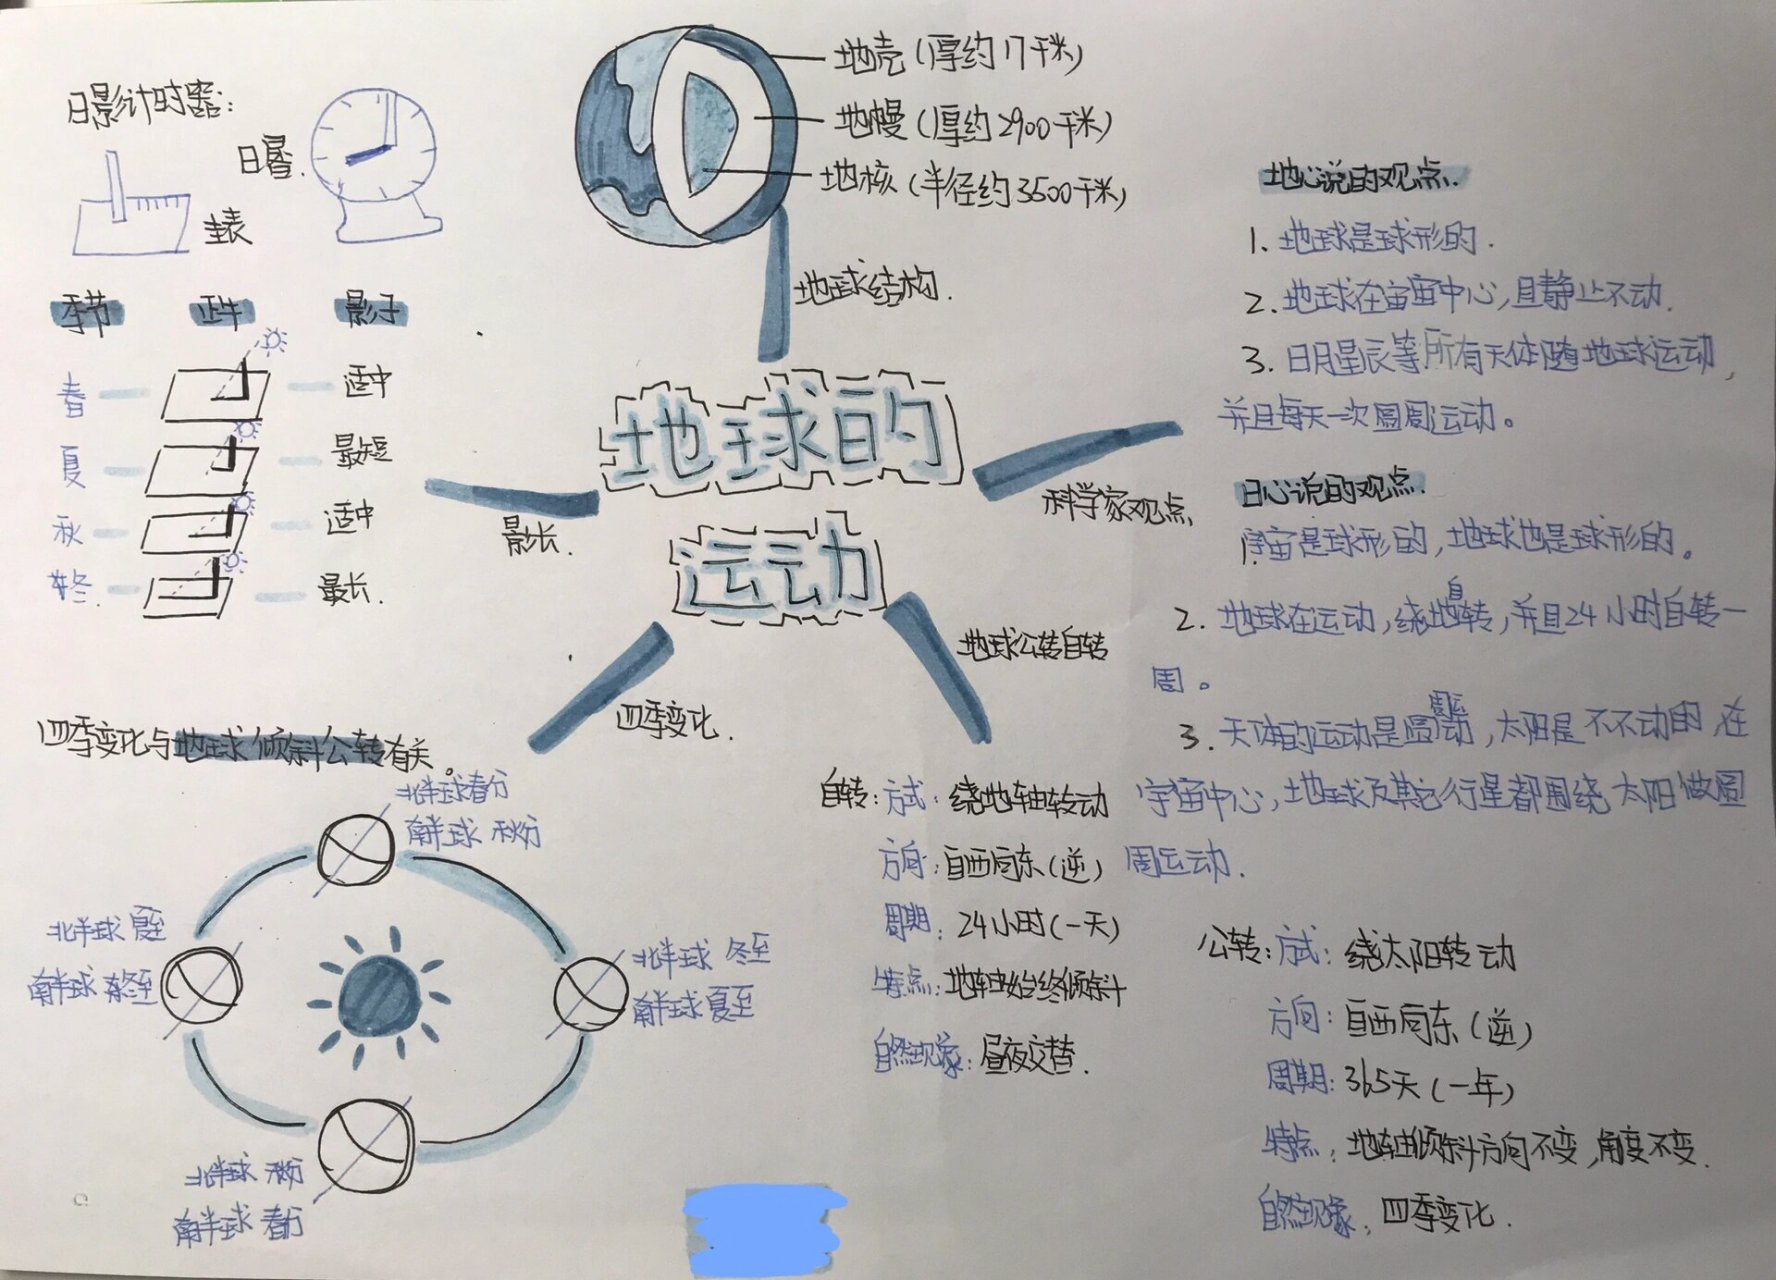 地壳(厚约17千米)
地幔(厚约2900千米)
地核(半径约3500千米)
地球结构.
日影计时器:
日晷.
圭表
季节 正午 影子
春 适中
夏 最短
秋 适中
冬 最长.
影长.
地球的
运动
科学家观点
地心说的观点.
1. 地球是球形的.
2. 地球在宇宙中心,且静止不动.
3. 日月星辰等所有天体随地球运动,
并且每天一次圆周运动。
日心说的观点.
1. 宇宙是球形的,地球也是球形的。
2. 地球在运动,绕地自转,并且24小时自转一
周。
3. 天体的运动是圆周运动,太阳是不不动的,在
宇宙中心,地球及其它行星都围绕太阳做圆
周运动.
四季变化.
四季变化与地球倾斜公转有关。
北半球春分
南半球 秋分
北半球 夏至
南半球 冬至
北半球 冬至
南半球 夏至
北半球 秋分
南半球 春分
地球公转自转
自转: 方式: 绕地轴转动
方向: 自西向东(逆)
周期: 24小时(一天)
特点: 地轴始终倾斜
自然现象: 昼夜交替.
公转: 方式: 绕太阳转动
方向: 自西向东(逆)
周期: 365天(一年)
特点: 地轴倾斜方向不变,角度不变.
自然现象: 四季变化.